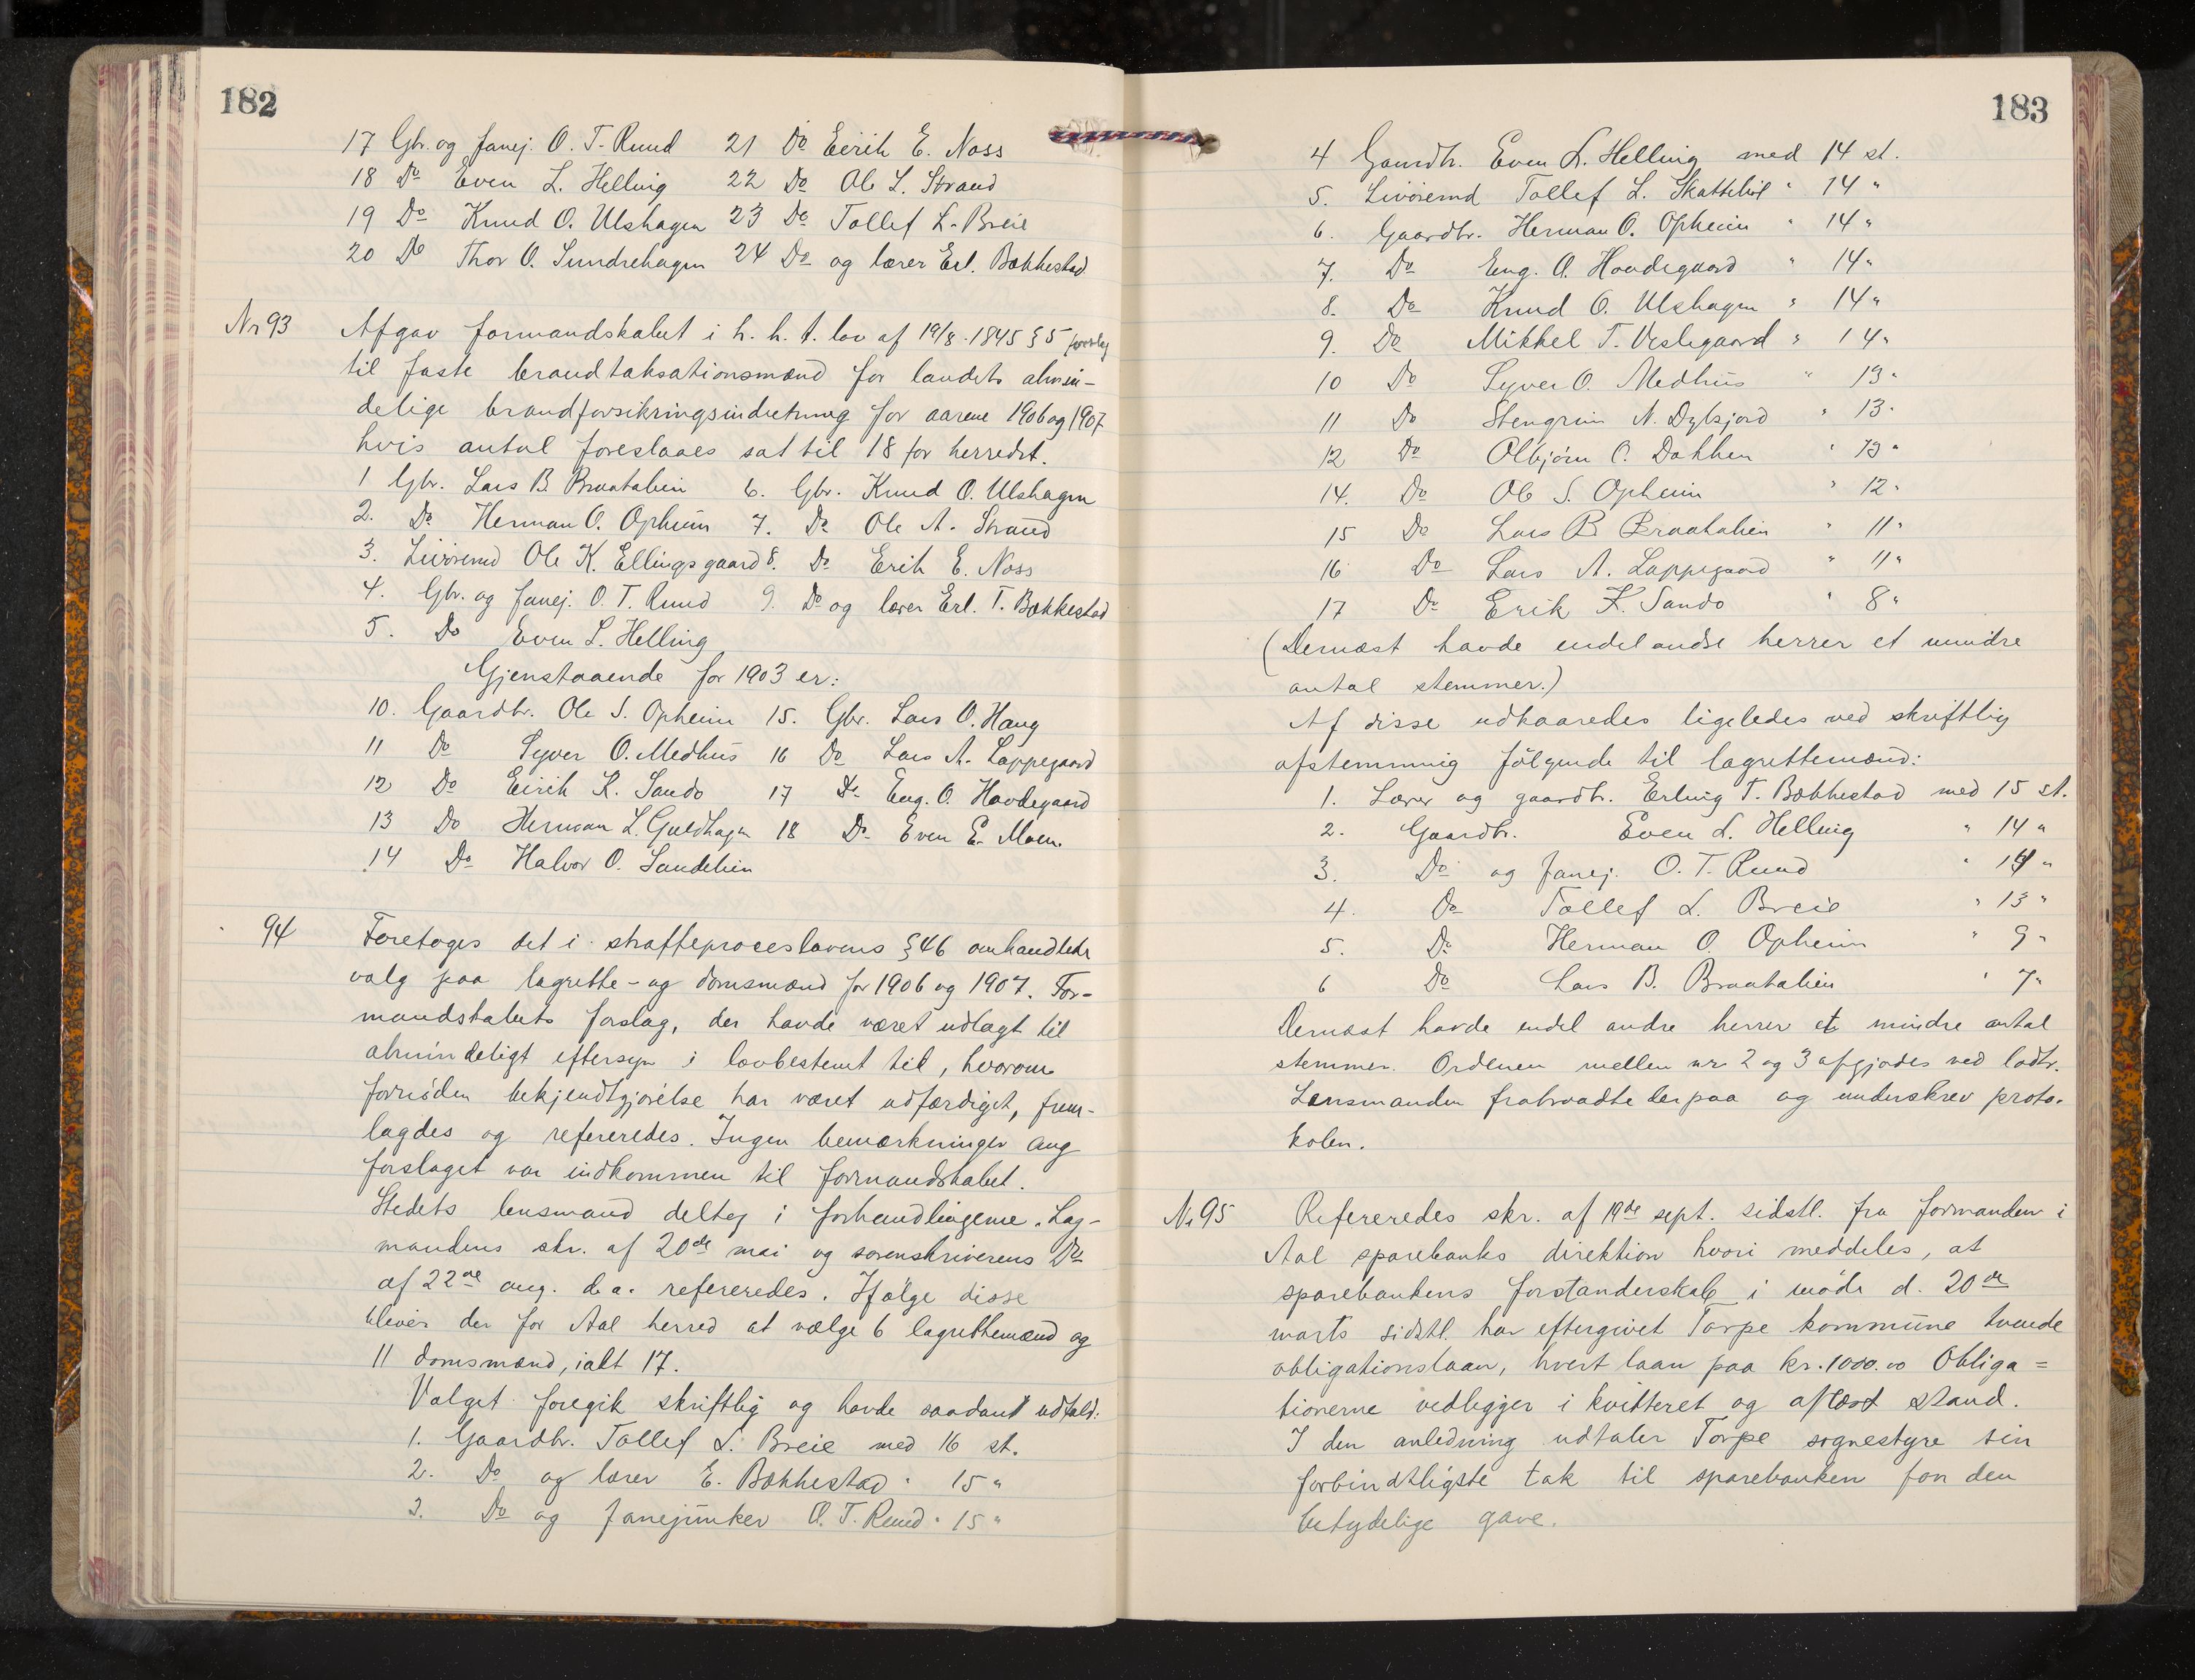 182
17 Gbr. og fanej. O. T. Ruud 21 Do Eirik E. Noss
18 Do Even L. Helling 22 Do Ole L. Strand
19 Do Knud O. Ulshagen 23 Do Tollef L. Breie
20 Do Thor O. Sundrehagen 24 Do og lærer Erl. Bækkestad
Nr 93 Afgav formandskabet i h. h. t. lov af 19/8 1845 § 5 forslag
til faste brandtaksationsmænd for landets almin-
delige brandforsikringsindretning for aarene 1906 og 1907
hvis antal foreslaaes sat til 18 for herredet.
1 Gbr. Lars B. Braatalien 6. Gbr. Knud O. Ulshagen
2. Do Herman O. Opheim 7. Do Ole A. Strand
3. Livøremd Ole K. Ellingsgaard 8. Do Erik E. Noss
4. Gbr. og fanej. O. T. Ruud 9. Do og lærer Erl. T. Bækkestad
5. Do Even L. Helling
Gjenstaaende for 1903 er:
10. Gaardbr. Ole S. Opheim 15. Gbr. Lars O. Haug
11 Do Syver O. Medhus 16 Do Lars A. Lappegaard
12 Do Eirik K. Sando 17 Do Eng. O. Hovdegaard
13 Do Herman L. Guldhagen 18 Do Even E. Moen.
14 Do Halvor O. Sandelien
94 Foretoges det i straffeproceslovens § 46 omhandlede
valg paa lagrette- og domsmænd for 1906 og 1907. For-
mandskabets forslag, der havde været udlagt til
almindeligt eftersyn i lovbestemt tid, hvorom
fornøden bekjendtgjørelse har været udfærdiget, frem-
lagdes og refereredes. Ingen bemærkninger ang
forslaget var indkommen til formandskabet.
Stedets lensmand deltog i forhandlingerne. Lag-
mandens skr. af 20de mai og sorenskriverens Do
af 22de aug. d. a. refereredes. Ifølge disse
bliver der for Aal herred at vælge 6 lagrettemænd og
11 domsmænd, ialt 17.
Valget foregik skriftlig og havde saadant udfald:
1. Gaardbr. Tollef L. Breie med 16 st.
2. Do og lærer E. Bækkestad " 15 "
3. Do og fanejunker O. T. Ruud " 15 "
183
4 Gaardbr. Even L. Helling med 14 st.
5. Livøremd Tollef L. Skattebøl " 14 "
6. Gaardbr. Herman O. Opheim " 14 "
7. Do Eng. O. Hovdegaard " 14 "
8. Do Knud O. Ulshagen " 14 "
9. Do Mikkel T. Veslegaard " 14 "
10 Do Syver O. Medhus " 13 "
11 Do Stengrim N. Dybsjord " 13 "
12 Do Olbjørn O. Dokken " 13 "
14. Do Ole S. Opheim " 12 "
15 Do Lars B Braatalien " 11 "
16 Do Lars A. Lappegaard " 11 "
17 Do Erik K. Sando " 8 "
(Dernæst havde endel andre herrer et mindre
antal stemmer.)
Af disse udkaaredes ligeledes ved skriftlig
afstemning følgende til lagrettemænd:
1. Lærer og gaardbr. Erling T. Bækkestad med 15 st.
2. Gaardbr. Even L. Helling " 14 "
3. Do og fanej. O. T. Ruud " 14 "
4. Do Tollef L. Breie " 13 "
5. Do Herman O. Opheim " 9 "
6 Do Lars B. Braatalien " 7 "
Dernæst havde endel andre herrer et mindre antal
stemmer. Ordenen mellem nr 2 og 3 afgjordes ved lodtr.
Lensmanden fratraadte derpaa og underskrev proto-
kolen.
Nr 95 Refereredes skr. af 19de sept. sidstl. fra formanden i
Aal sparebanks direktion hvori meddeles, at
sparebankens forstanderskab i møde d. 20de
marts sidstl. har eftergivet Torpe kommune tvende
obligationslaan, hvert laan paa kr. 1000.00 Obliga=
tionerne vedligger i kvitteret og aflæst stand.
I den anledning udtaler Torpe sognestyre sin
forbindtligste tak til sparebanken for den
betydelige gave.